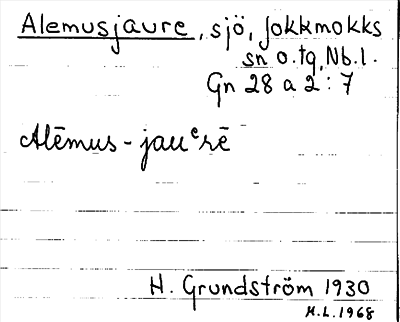 Alemusjaure, sjö, Jokkmokks
sn o. tg, Nb. l.
Gn 28 a 2 : 7
Alēmus-jauᵉrē
H. Grundström 1930
H.L. 1968